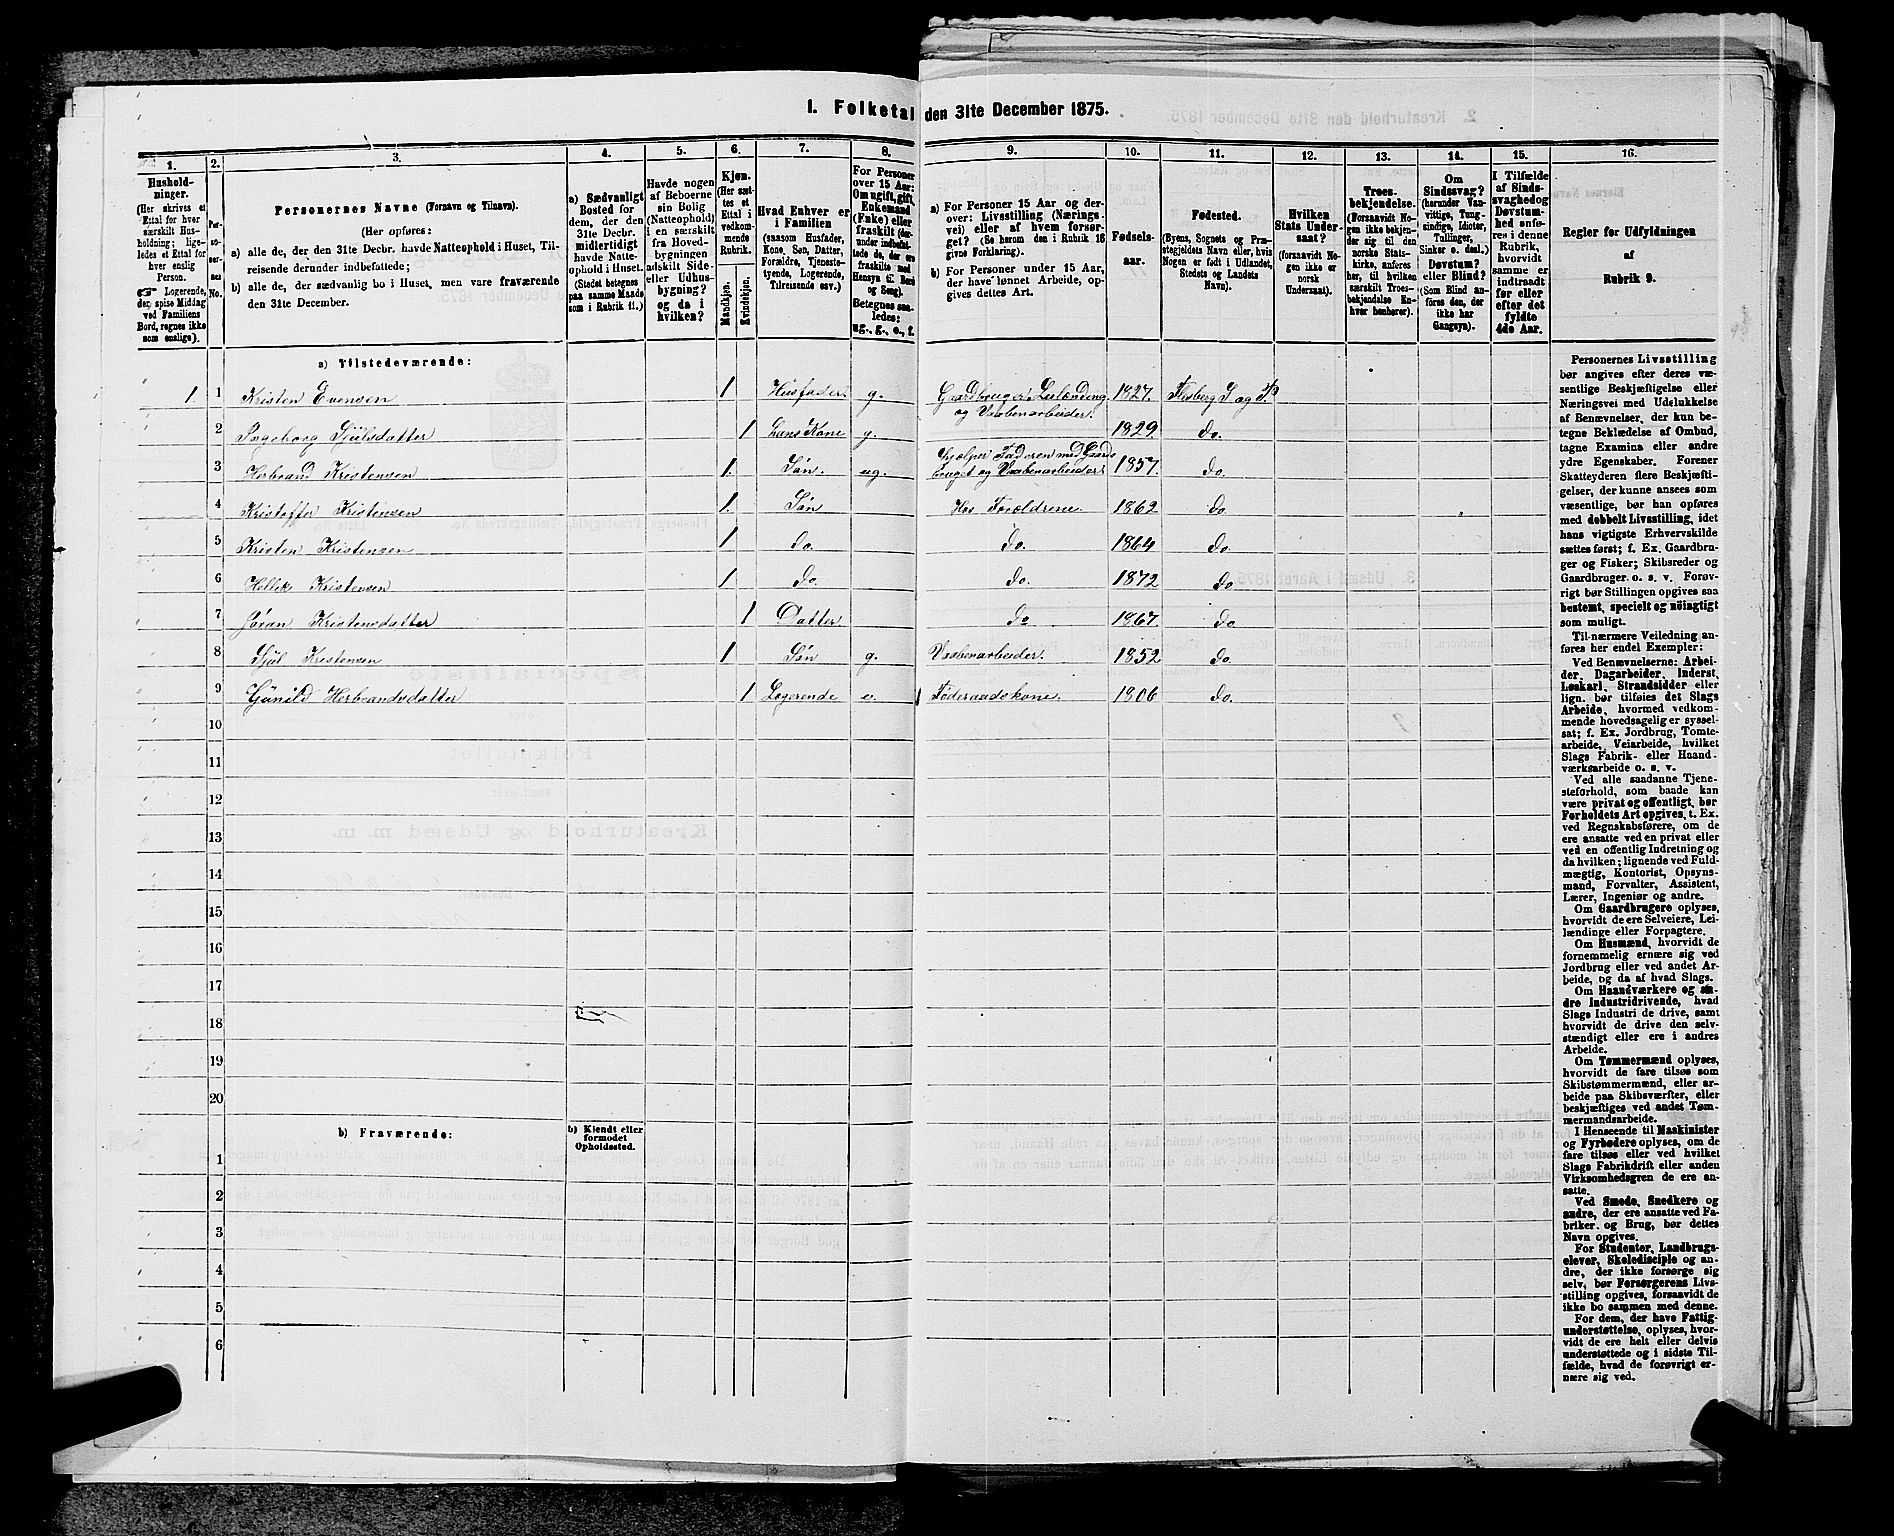 1. Folketal den 31te December 1875.
1. 2. 3. 4. 5. 6. 7. 8. 9. 10. 11. 12. 13. 14. 15. 16.
Hushold-
ninger.
(Her skrives et
Ettal for hver
særskilt Hus-
holdning; lige-
ledes et Ettal for
hver enslig
Person.
☞ Logerende,
der spise Middag
ved Familiens
Bord, regnes ikke
som enslige).
Per-
so-
ner-
nes
No.
Personernes Navne (Fornavn og Tilnavn).
(Her opføres:
a) alle de, der den 31te Decbr. havde Natteophold i Huset, Til-
reisende derunder indbefattede;
b) alle de, der sædvanlig bo i Huset, men vare fraværende
den 31te December.
a) Sædvanligt
Bosted for
dem, der den
31te Decbr.
midlertidigt
havde Natte-
ophold i Huset.
(Stedet betegnes
paa samme Maade
som i Rubrik 11.)
Havde nogen
af Beboerne
sin Bolig
(Natteophold)
i en særskilt
fra Hoved-
bygningen
adskilt Side-
eller Udhus-
bygning?
og da i
hvilken?
Kjøn.
(Her sæt-
tes et
Ettal i
vedkom-
mende
Rubrik.
Mandkjøn.
Kvindekjøn.
Hvad Enhver er
i Familien
(saasom Husfader,
Kone, Søn, Datter,
Forældre, Tjeneste-
tyende, Logerende,
Tilreisende osv.)
For Personer
over 15 Aar:
Om ugift, gift,
Enkemand
(Enke) eller
fraskilt (der-
under indbefat-
tede de, der ere
fraskilte med
Hensyn til Bord
og Seng).
Betegnes saa-
ledes:
ug., g., e., f.
a) For Personer 15 Aar og der-
over: Livsstilling (Nærings-
vei) eller af hvem forsør-
get? (Se herom den i Rubrik 16
givne Forklaring).
b) For Personer under 15 Aar,
der have lønnet Arbeide, op-
gives dettes Art.
Fødsels-
aar.
Fødested.
(Byens, Sognets og Præ-
stegjeldets Navn, eller, hvis
Nogen er født i Udlandet,
Stedets og Landets
Navn).
Hvilken
Stats Under-
saat?
(forsaavidt No-
gen ikke er
norsk
Undersaat).
Troes-
bekjendelse.
(Forsaavidt No-
gen ikke bekjen-
der sig til den
norske Stats-
kirke, anføres
her, til hvilken
særskilt Troes-
bekjendelse En-
hver henhører).
Om
Sindssvag?
(herunder Van-
vittige, Tung-
sindige, Idioter,
Tullinger,
Sinker o. desl.)
Døvstum?
eller Blind?
(Som Blind an-
føres den, der
ikke har
Gangsyn).
I Tilfælde
af Sinds-
svaghed og
Døvstum-
hed anfø-
res i denne
Rubrik,
hvorvidt
samme er
indtraadt
før eller
efter det
fyldte
4de Aar.
Regler for Udfyldningen
af
Rubrik 9.
a) Tilstedeværende:
1. 1 Kristen Evensen 1 Husfader g. Gaardbruger, Leilænding 1827. Flesberg S. og P.
og Vaabenarbeider.
2 Ingeborg Sjulsdatter 1 hans Kone g. 1829. do.
Hjælper Faderen med Gaards
3 Herbrand Kristensen 1 Søn. ug. bruget og Vaabenarbeider. 1857. do.
4 Kristoffer Kristensen 1 Søn Hos Forældrene 1862 do
5 Kristen Kristensen 1 do. do. 1864 do.
6 Hellek Kristensen 1 do. do. 1872 do
7 Jøran Kristensdatter 1 Datter do 1867. do
8 Sjul Kristensen 1 Søn g. Vaabenarbeider. 1852 do.
9 Gunild Herbrandsdatter 1 Logerende e. Føderaadskone. 1806 do.
10
11
12
13
14
15
16
17
18
19
20
b) Fraværende:
b) Kjendt eller
formodet
Opholdssted.
1
2
3
4
5
6
Personernes Livsstilling
bør angives efter deres væ-
sentlige Beskjæftigelse eller
Næringsvei med Udelukkelse
af Benævnelser, der kun be-
tegne Beklædelse af Ombud,
tagne Examina eller andre
ydre Egenskaber. Forener
Skatteyderen flere Beskjæfti-
gelser, der kunne ansees som
væsentlige, bør han opføres
med dobbelt Livsstilling, idet
hans vigtigste Erhvervskilde
sættes først; f. Ex. Gaardbru-
ger og Fisker; Skibsreder og
Gaardbruger o. s. v. Forøv-
rigt bør Stillingen opgives saa
bestemt, specielt og nöiagtigt
som muligt.
Til nærmere Veiledning an-
føres her endel Exempler:
Ved Benævnelserne: Arbei-
der, Dagarbeider, Inderst,
Løskarl, Strandsidder eller
lign. bør tilføies det Slags
Arbeide, hvormed vedkom-
mende hovedsagelig er syssel-
sat; f. Ex. Jordbrug, Tomte-
arbeide, Veiarbeide, hvilket
Slags Fabrik- eller Haand-
værksarbeide o. s. v.
Ved alle saadanne Tjene-
steforhold, som baade kan
være privat og offentligt, bør
Forholdets Art opgives, t. Ex.
ved Regnskabsførere, om de
ere ansatte ved en privat eller
ved en offentlig Indretning og
da hvilken; lignende ved Fuld-
mægtig, Kontorist, Opsyns-
mand, Forvalter, Assistent,
Lærer, Ingeniør og andre.
Om Gaardbrugere oplyses,
hvorvidt de ere Selveiere, Lei-
lændinge eller Forpagtere.
Om Husmænd, hvorvidt de
fornemmelig ernære sig ved
Jordbrug eller ved andet Ar-
beide, og da af hvad Slags.
Om Haandværkere og an-
dre Industridrivende, hvad
Slags Industri de drive, samt
hvorvidt de drive den selv-
stændigt eller ere i andres
Arbeide.
Om Tømmermænd oplyses,
hvorvidt de fare tilsøs som
Skibstømmermænd, eller ar-
beide paa Skibsværfter, eller
beskjæftiges ved andet Tøm-
mermandsarbeide.
I Henseende til Maskinister
og Fyrbødere oplyses, om de
fare tilsøs eller ved hvilket
Slags Fabrikdrift eller anden
Virksomhedsgren de ere an-
satte.
Ved Smede, Snedkere og
andre, der ere ansatte ved Fa-
briker og Brug, bør dettes
Navn opgives.
For Studenter, Landbrugs-
elever, Skoledisciple og an-
dre, der ikke forsørge sig
selv, bør Forsørgerens Livs-
stilling opgives, forsaavidt de
ikke bo sammen med denne.
For dem, der have Fattig-
understøttelse, oplyses, hvor-
vidt de ere helt eller delvis
understøttede og i sidste Til-
fælde, hvad de forøvrigt er-
nære sig ved.